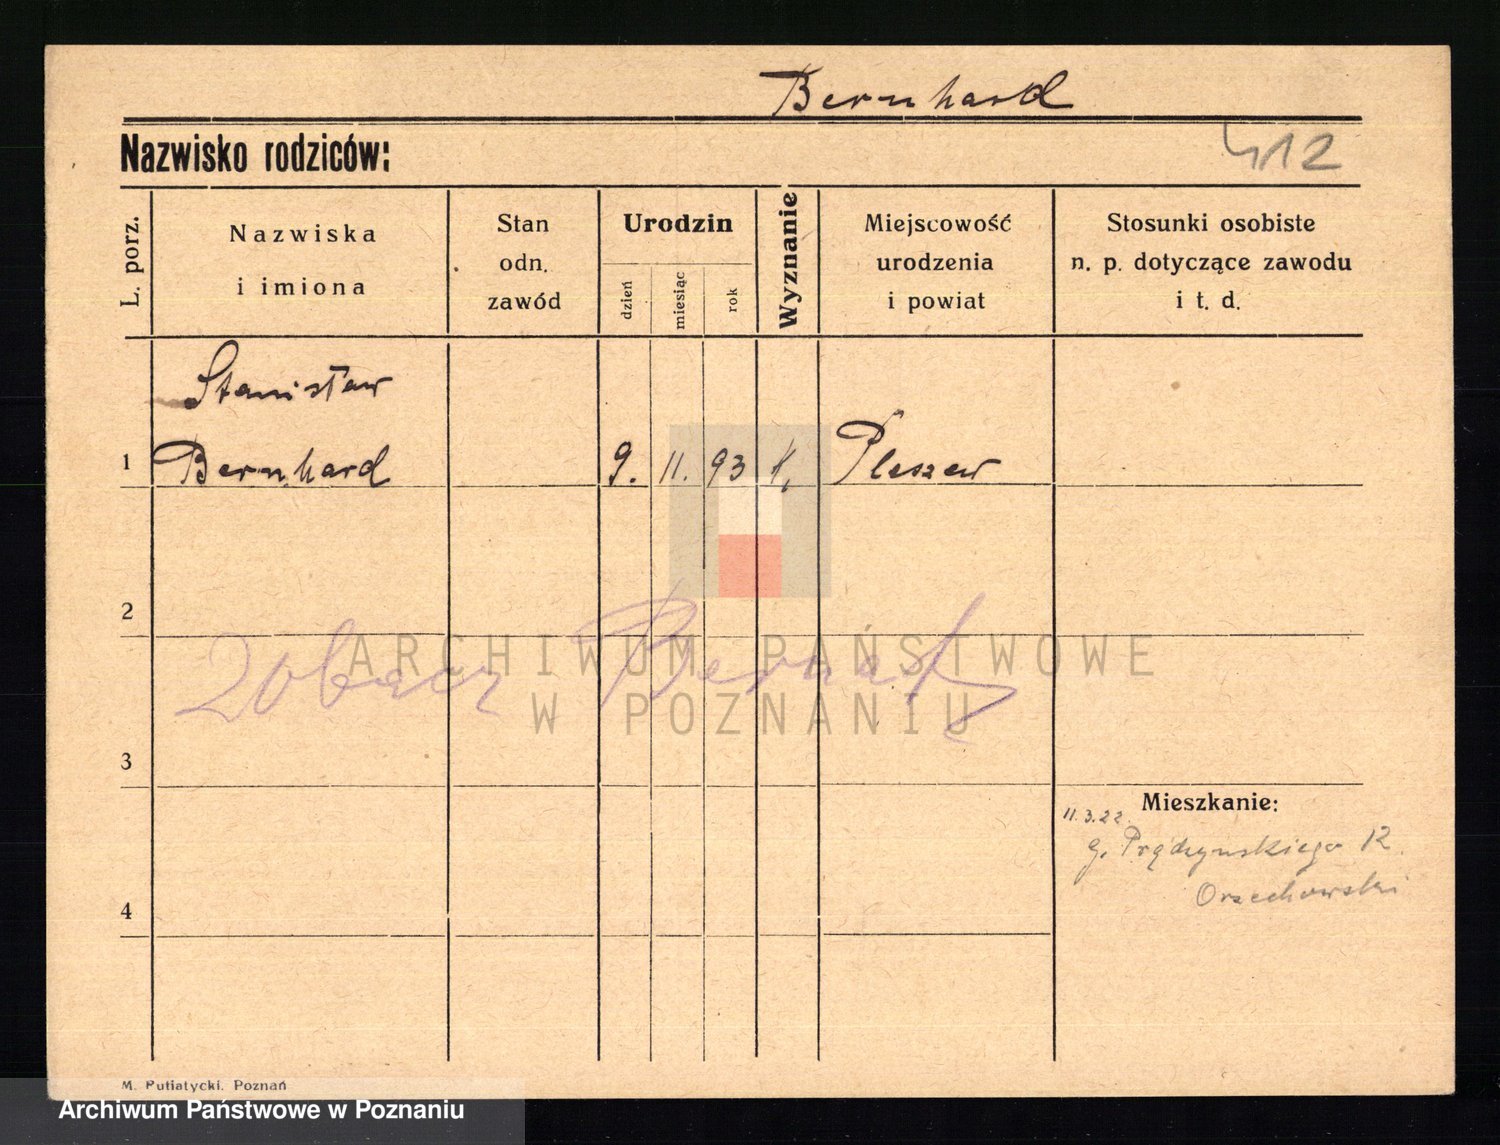 Bernhard
Nazwisko rodziców:
412
L. porz.
Nazwiska
i imiona
Stan
odn.
zawód
Urodzin
dzień
miesiąc
rok
Wyznanie
Miejscowość
urodzenia
i powiat
Stosunki osobiste
n. p. dotyczące zawodu
i t. d.
Stanisław
1 Bernhard 9. 11. 93 k. Pleszew
2
zobacz
ARCHIWUM PAŃSTWOWE
W POZNANIU
3
Mieszkanie:
11.3.22.
g. Prądzynskiego 12
Orzechowski
4
M. Putiatycki, Poznań
Archiwum Państwowe w Poznaniu